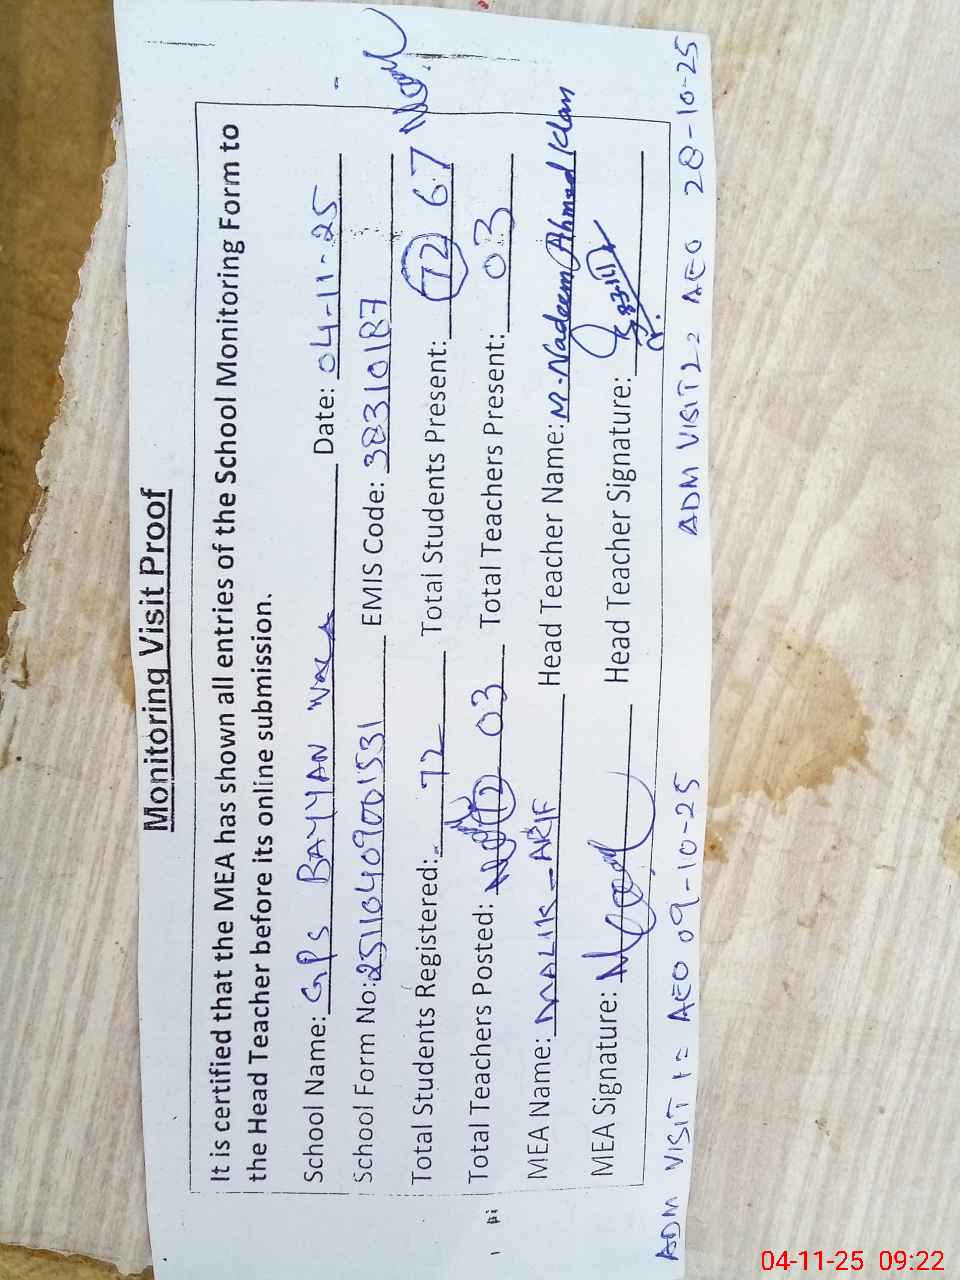 Monitoring Visit Proof
It is certified that the MEA has shown all entries of the School Monitoring Form to
the Head Teacher before its online submission.
School Name: GPS BAYYAN Date: 04-11-25
School Form No: 25110409001531 EMIS Code: 38310187
Total Students Registered: 72 Total Students Present: 72 67
Total Teachers Posted: 72 03 Total Teachers Present: 03
MEA Name: MALIK-ARIF Head Teacher Name: M. Nadeem Ahmed Khan
MEA Signature: Head Teacher Signature:
ADM VISIT 1= AEO 09-10-25 ADM VISIT 2= AEO 28-10-25
04-11-25 09:22